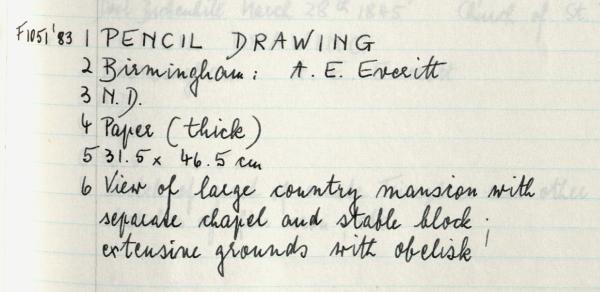 F1051'83 1 PENCIL DRAWING
2 Birmingham: A. E. Everitt
3 N.D.
4 Paper (thick)
5 31.5 x 46.5 cm
6 View of large country mansion with
separate chapel and stable block;
extensive grounds with obelisk